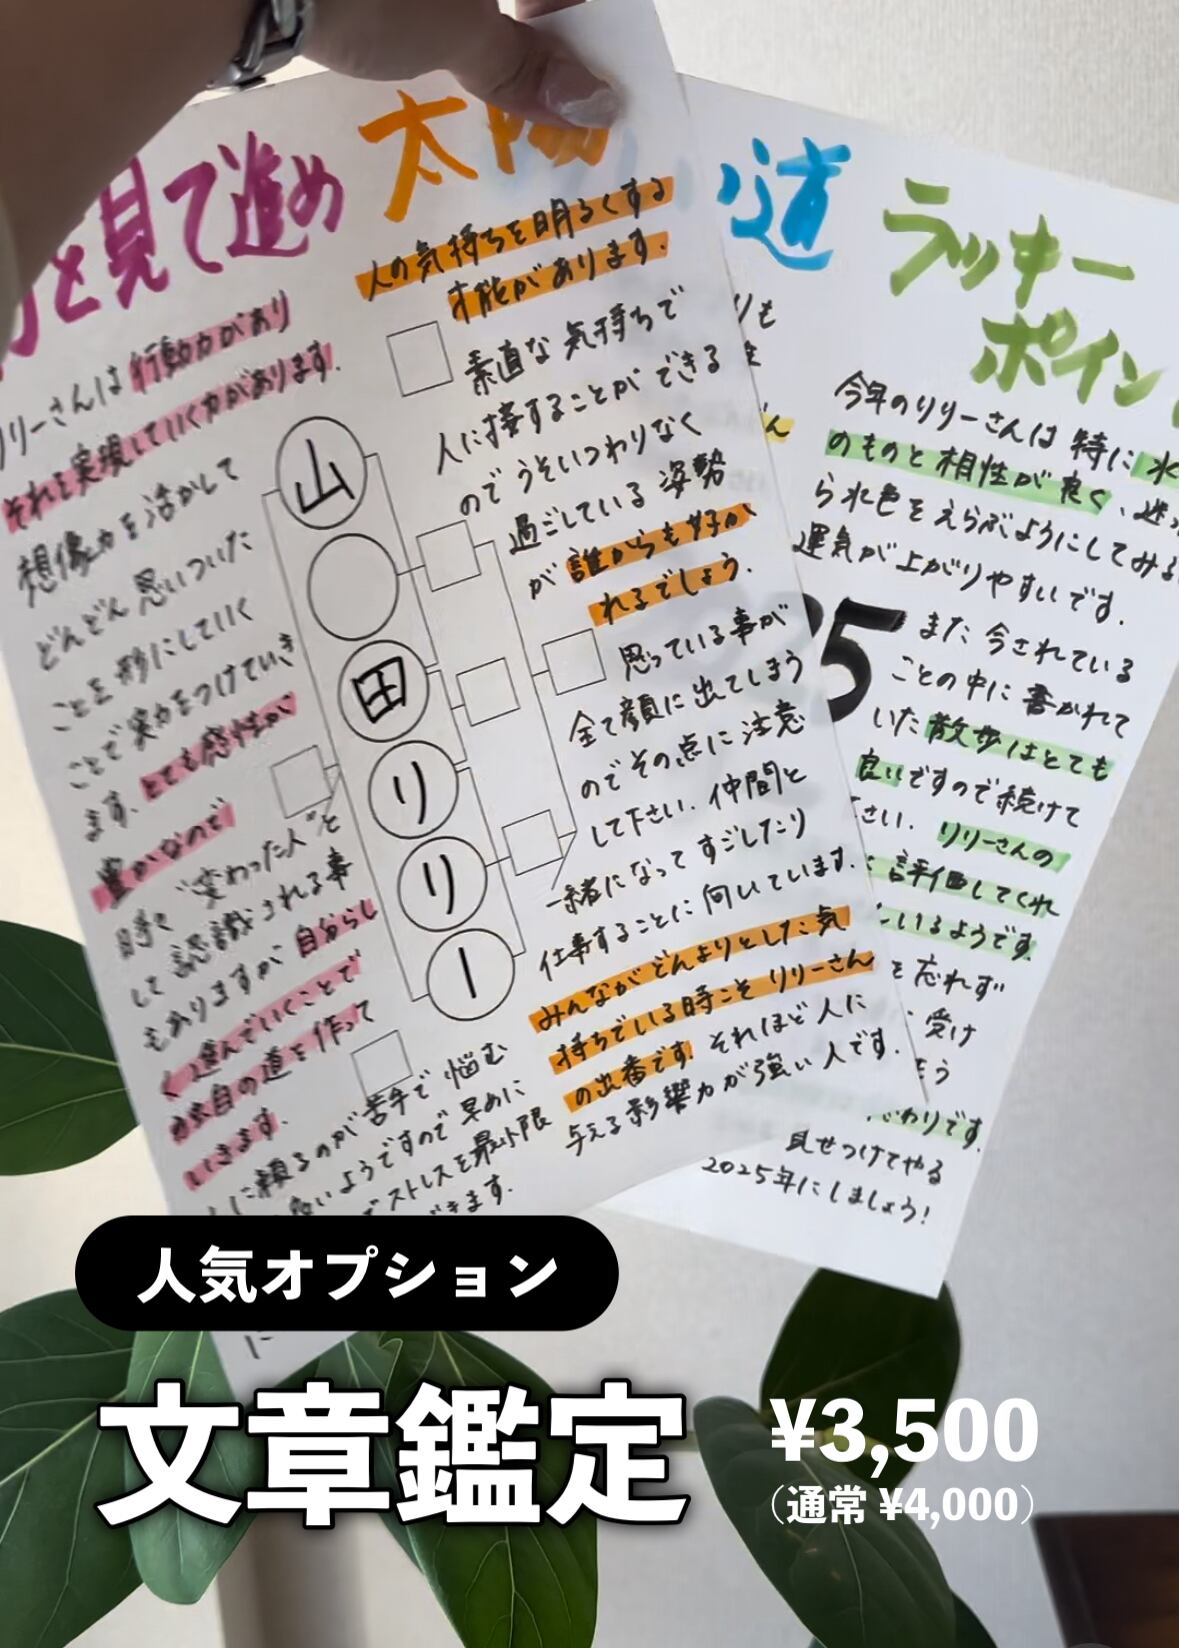 と見て進め
リリーさんは行動力があり
それを実現していく力があります。
想像力を活かして
どんどん思いついた
ことを形にしていく
ことで実力をつけていき
ます。とても感性が
豊かなので
時々"変わった人"と
して認識される事
もありますが自分らし
く進んでいくことで
独自の道を作って
いきます。
に頼るのが苦手で悩む
ようですので早めに
ストレスを最小限
できます。
山
田
リ
リ
ー
太陽
人の気持ちを明るくする
才能があります。
素直な気持ちで
人に接することができる
のでうそいつわりなく
過ごしている姿勢
が誰からも好か
れるでしょう。
思っている事が
全て顔に出てしまう
のでその点に注意
して下さい。仲間と
一緒になってすごしたり
仕事することに向いています。
みんながどんよりとした気
持ちでいる時こそリリーさん
の出番です。それほど人に
与える影響力が強い人です。
い道
ラッキー
ポイン
今年のリリーさんは特に水
のものと相性が良く、迷っ
ら水色をえらぶようにしてみる
運気が上がりやすいです。
25
また今されている
ことの中に書かれて
いた散歩はとても
良いですので続けて
さい。リリーさんの
評価してくれ
いるようです。
を忘れず
受け
もう
わりです。
見せつけてやる
2025年にしましょう!
人気オプション
文章鑑定
¥3,500
(通常 ¥4,000)